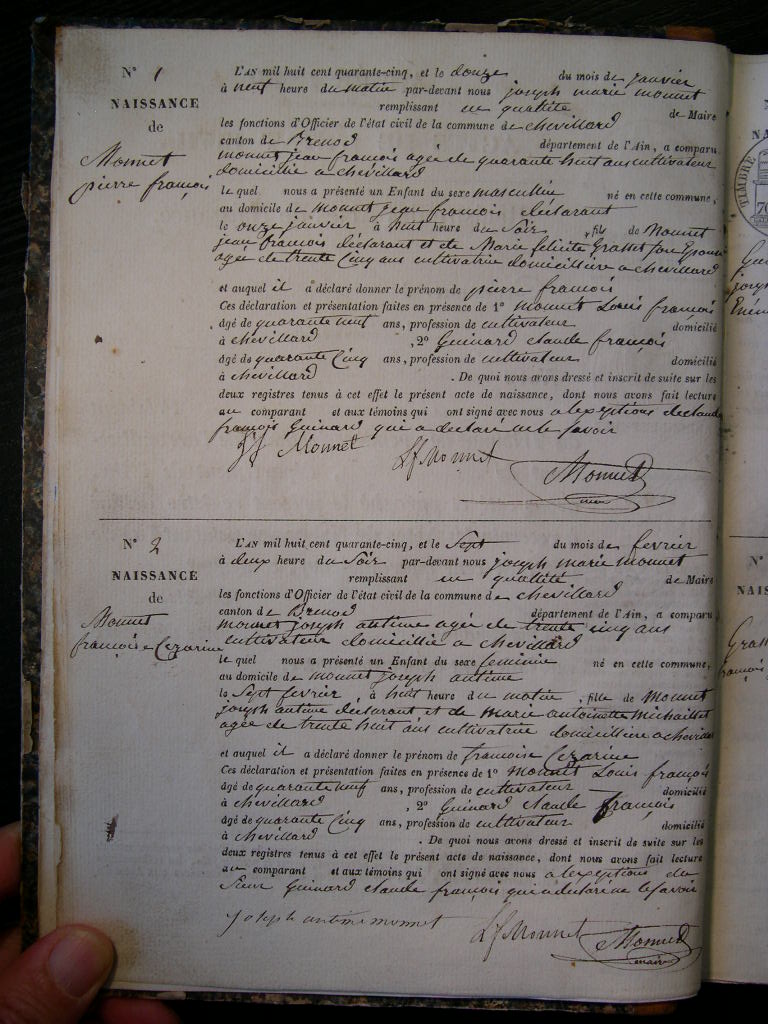 N° 1
NAISSANCE
de
Monnet
pierre françois
L'AN mil huit cent quarante-cinq, et le douze du mois de janvier
à neuf heure du matin par-devant nous joseph marie monnet
remplissant en qualité de Maire
les fonctions d'Officier de l'état civil de la commune de chevillard
canton de Brenod département de l'Ain, a comparu
monnet jean françois agée de quarante huit ans cultivateur
domicillié a chevillard
le quel nous a présenté un Enfant du sexe masculin né en cette commune,
au domicile de monnet jean françois déclarant
le onze janvier à huit heure du soir, fils de Monnet
jean françois déclarant et de Marie felicité Grasset son Epouse
agée de trente Cinq ans cultivatrice domicillière a chevillard
et auquel il a déclaré donner le prénom de pierre françois
Ces déclaration et présentation faites en présence de 1° monnet Louis françois
âgé de quarante neuf ans, profession de cultivateur domicilié
à chevillard, 2° Guinard claude françois
âgé de quarante Cinq ans, profession de cultivateur domicilié
à chevillard. De quoi nous avons dressé et inscrit de suite sur les
deux registres tenus à cet effet le présent acte de naissance, dont nous avons fait lecture
au comparant et aux témoins qui ont signé avec nous a lexeptions de claude
françois Guinard qui a declaré ne le savoir
Jf Monnet Lf Monnet Monnet
maire
N° 2
NAISSANCE
de
Monnet
françoise Cezarine
L'AN mil huit cent quarante-cinq, et le Sept du mois de fevrier
à deux heure du Soir par-devant nous joseph marie monnet
remplissant en qualité de Maire
les fonctions d'Officier de l'état civil de la commune de chevillard
canton de Brenod département de l'Ain, a comparu
monnet joseph antime agée de trente cinq ans
cultivateur domicillié a chevillard
le quel nous a présenté un Enfant du sexe feminine né en cette commune,
au domicile de monnet joseph antime
le Sept fevrier, à huit heure du matin, fille de Monnet
joseph antime déclarant et de marie antoinette Michaillet
agée de trente huit ans cultivatrice domicillière a chevillard
et auquel il a déclaré donner le prénom de francoise Cezarine
Ces déclaration et présentation faites en présence de 1° monnet Louis françois
âgé de quarante neuf ans, profession de cultivateur domicilié
à chevillard, 2° Guinard claude françois
âgé de quarante Cinq ans, profession de cultivateur domicilié
à chevillard. De quoi nous avons dressé et inscrit de suite sur les
deux registres tenus à cet effet le présent acte de naissance, dont nous avons fait lecture
au comparant et aux témoins qui ont signé avec nous a lexeptions du
Sieur Guinard claude françois qui a déclaré ne le savoir
joseph antime monnet Lf Monnet Monnet
maire
TIMBRE